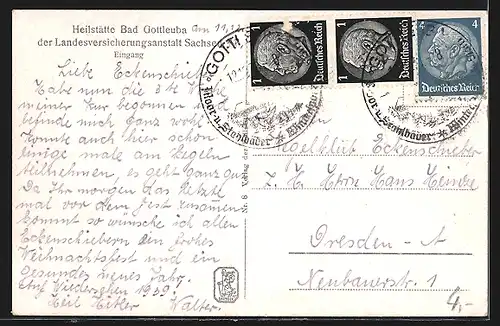 Heilstätte Bad Gottleuba
der Landesversicherungsanstalt Sachsen
Eingang
Am 11.12.
Liebe Eckenschieber
Habe nun die 3te Woche
meiner Kur begonnen und
befinde mich ganz wohl
konnte auch hier schon
einige male am Kegeln
teilnehmen, es geht ganz gut
Da Ihr morgen das letzte
mal vor dem Fest zusammen
kommt so wünsche ich allen
Eckenschiebern ein frohes
Weihnachtsfest und ein
gesundes neues Jahr.
Auf Wiedersehen 1939
Heil Hitler Walter.
1 Deutsches Reich
1 Deutsches Reich
4 Deutsches Reich
GOTTL
Moor- u. Stahlbäder
Kegelklub Eckenschieber
z. H. Herrn Hans Heinze
Dresden-A
Neubauerstr. 1
Nr. 8 Verlag der
4,-